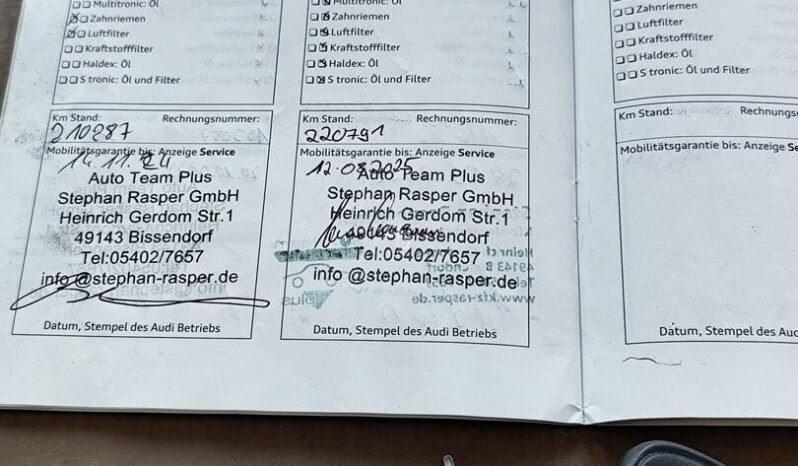 Multitronic: Öl
Zahnriemen
Luftfilter
Kraftstofffilter
Haldex: Öl
S tronic: Öl und Filter
Km Stand: Rechnungsnummer:
210287
Mobilitätsgarantie bis: Anzeige Service
14.11.24
Auto Team Plus
Stephan Rasper GmbH
Heinrich Gerdom Str.1
49143 Bissendorf
Tel:05402/7657
info @stephan-rasper.de
Datum, Stempel des Audi Betriebs
Multitronic: Öl
Zahnriemen
Luftfilter
Kraftstofffilter
Haldex: Öl
S tronic: Öl und Filter
Km Stand: Rechnungsnummer:
220791
Mobilitätsgarantie bis: Anzeige Service
12.08.2025
Auto Team Plus
Stephan Rasper GmbH
Heinrich Gerdom Str.1
49143 Bissendorf
Tel:05402/7657
info @stephan-rasper.de
Datum, Stempel des Audi Betriebs
Zahnriemen
Luftfilter
Kraftstofffilter
Haldex: Öl
S tronic: Öl und Filter
Km Stand: Rechnungsnumme
Mobilitätsgarantie bis: Anzeige Se
Datum, Stempel des Aud